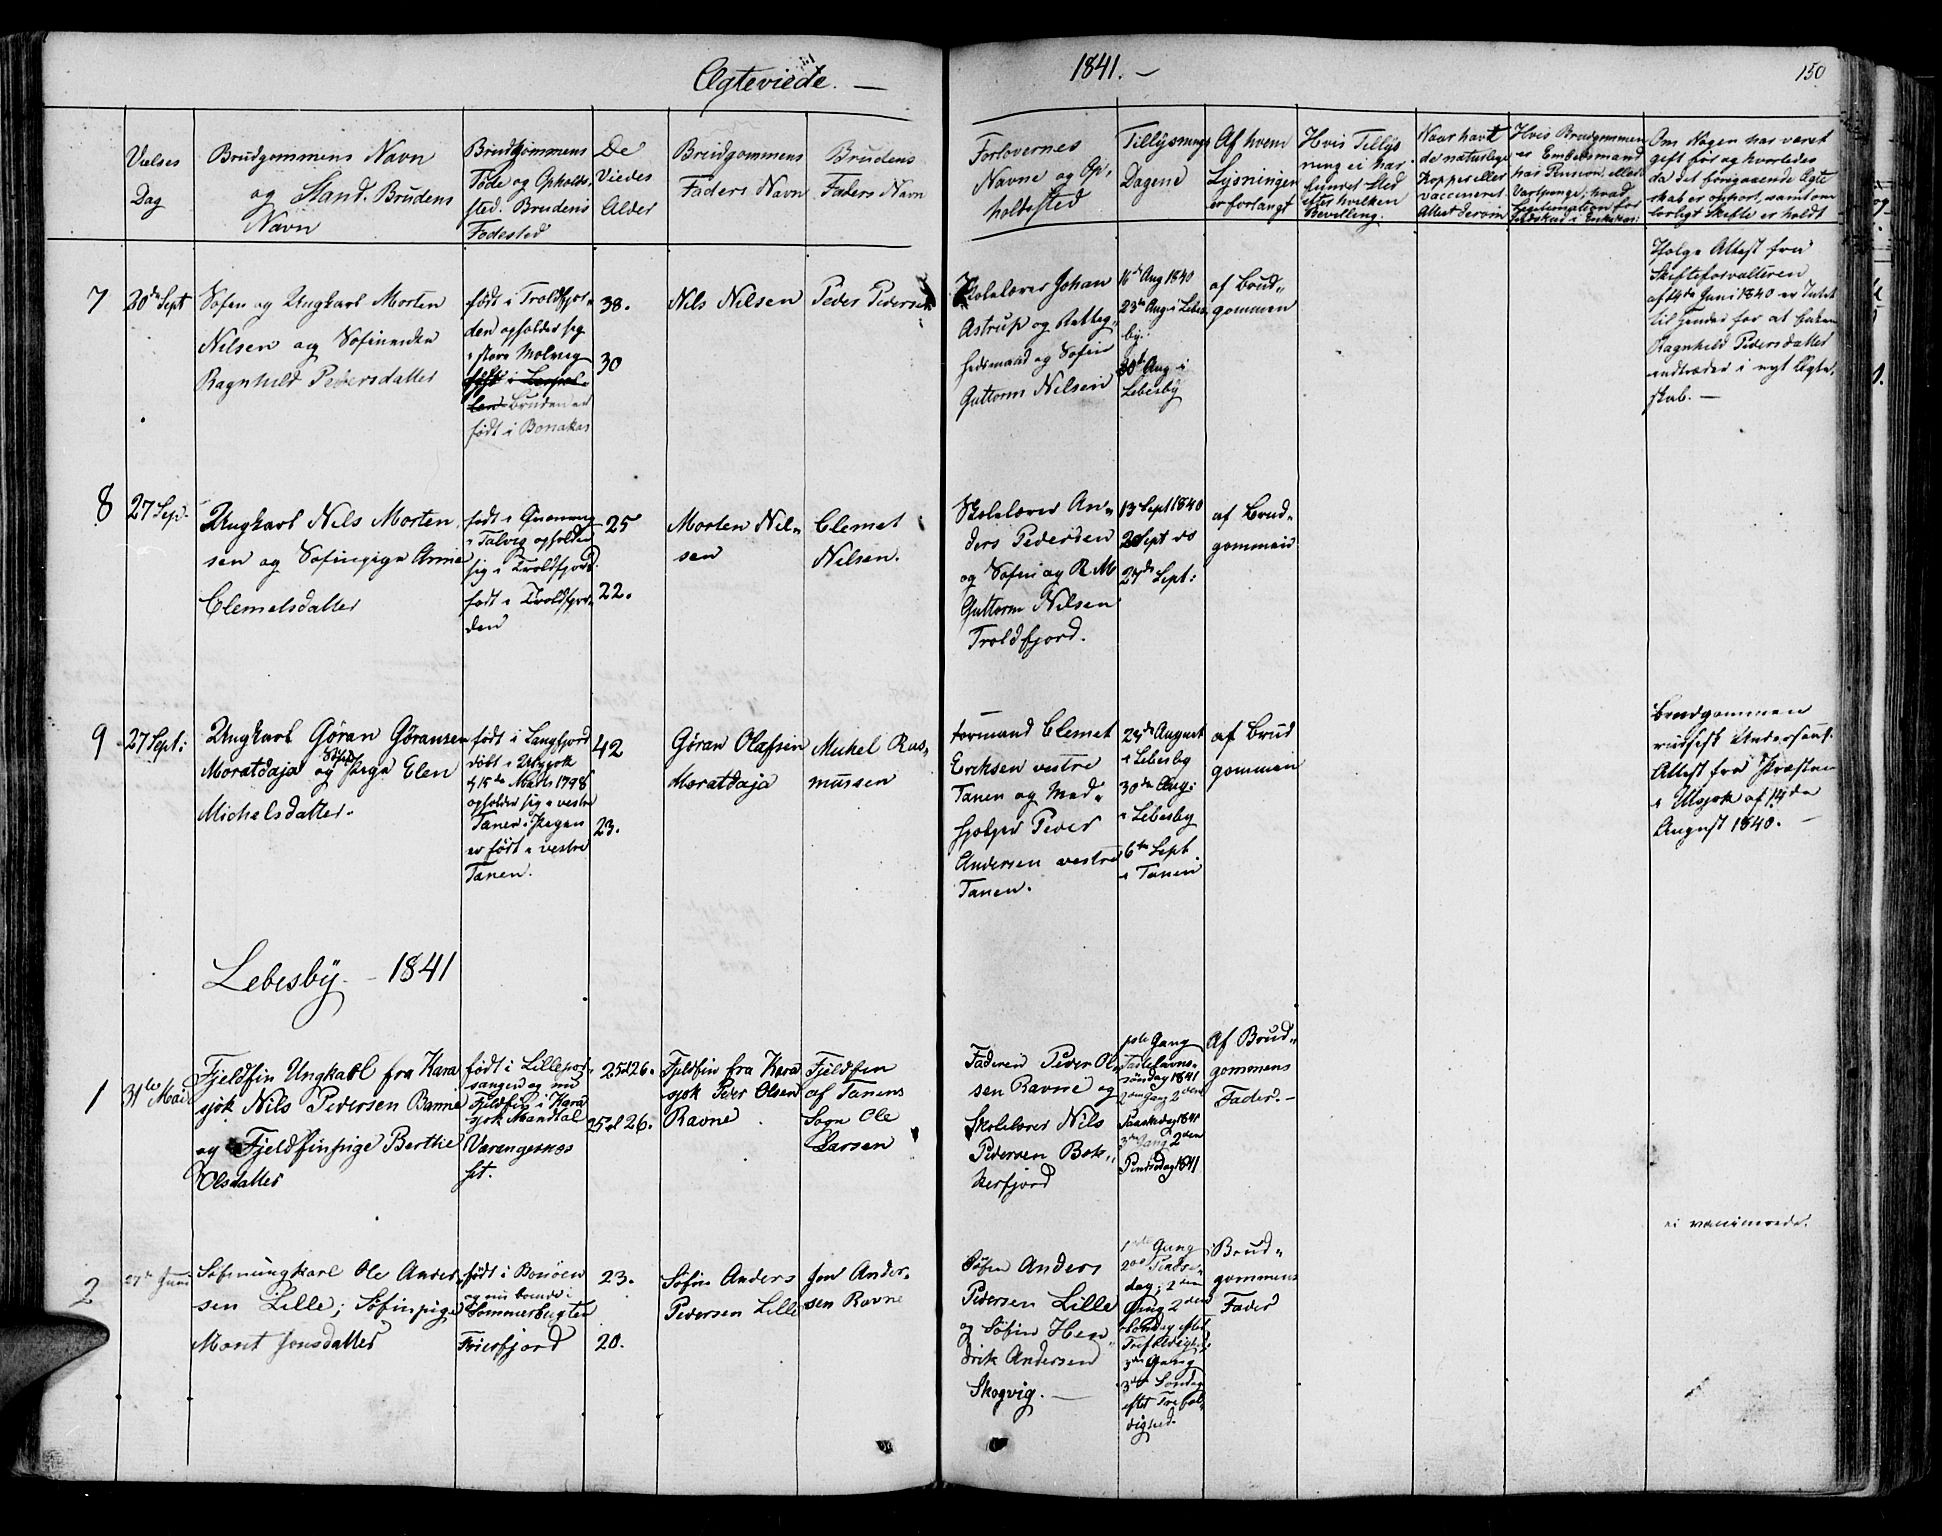 Ægteviede. —
1841. —
150
Vielses
Dag
Brudgommens Navn
og Stand. Brudens
Navn
Brudgommens
Føde og Opholds-
sted. Brudens
Fødested
De
Viedes
Alder
Brudgommens
Faders Navn
Brudens
Faders Navn
Forlovernes
Navne og Op-
holdssted
Tillysnings
Dagene
Af hvem
Lysningen
er forlangt
Hvis Tillys
ning ei har
fundet Sted
efter hvilken
Bevilling.
Naar havt
de naturlige
Kopper eller
vaccineret
Attest derom
Hvis Brudgommen
er Embedsmand
har Pension eller
Vartpenge, hvad
Legitimation for
Indskud i Enkekas:
Om Nogen har været
gift før og hvorledes
da det foregaaende Ægte
skab er ophørt, samt om
lovligt Skifte er holdt
7
30de Sept
Søfin og Ungkarl Morten
Nilsen og Søfinenken
Ragnhild Pedersdatter
født i Troldfjor-
den opholder sig
i store Molvig
født i
Bruden er
født i Bonakas
38.
30
Nils Nilsen
Peder Pedersen
Skolelærer Johan
Astrup og Retteg-
hedsmand og Søfin
Guttorm Nilsen
16de Aug 1840
23de Aug i Lebes-
by.
30te Aug i
Lebesby
af Brud-
gommen
Ifølge Attest fra
Skifteforvalteren
af 14de Juni 1840 er Intet
til Hinder for at Enken
Ragnhild Pedersdatter
indtræder i nyt Ægte-
skab. —
8
27 Sep.
Ungkarl Nils Morten
sen og Søfinpige Anne
Clemetsdatter
født i
i Talvig opholder
sig i Troldfjord.
født i Troldfjor-
den
25
22.
Morten Nil-
sen
Clemet
Nilsen.
Skolelærer An-
ders Pedersen
og Søfin og R. M
Guttorm Nilsen
Troldfjord.
13 Sept 1840
20 Sept do
27de Sept:
af Brud-
gommen
9
27 Sept:
Ungkarl Gøran Gøransen
Moratdaja og Søfin Pige Elen
Michelsdatter.
født i Langfjord
døbt i Utsjok
15de Marts 1798
opholder sig i vestre
Tanen. Pigen
er født i vestre
Tanen.
42
23.
Gøran Olafsen
Moratdaja
Michel Ras-
mussen
Formand Clemet
Eriksen vestre
Tanen og Med-
hjelper Peder
Andersen vestre
Tanen.
24de August
i Lebesby
30de Aug:
i Lebesby
6te Sept
i Tanen
af Brud
gommen
Brudgommen
Attest fra Præsten
i Utsjok af 14de
August 1840. —
Lebesby. — 1841
1
31te Mai
Fjeldfin Ungkarl fra Kara
sjok Nils Pedersen Ravne
og Fjeldfinpige Berthe
Olsdatter
født i Lillepor-
sangen og nu
Fjeldfin i Kara
sjok Mandtal
Varangernæs
set.
25 à 26.
25 à 26.
Fjeldfin fra Kara
sjok Peder Olsen
Ravne
Fjeldfin
af Tanens
Sogn Ole
Larsen
Faderen Peder Ol-
sen Ravne og
Skolelærer Nils
Pedersen Bek-
kerfjord
1ste Gang
Fastelavns-
søndag 1841
2den Gang 2den
Paaskedag 1841
3de Gang 2den
Pindsedag 1841
Af Brud-
gommens
Fader. —
2
27de Juni
Søfinungkarl Ole Ander
sen Lille; Søfinpige
Marit Jonsdatter
født i Bonøen
og nu boende i
Sommerbugten
Frierfjord
23.
20.
Søfin Anders
Pedersen Lille
Jon Ander-
sen Ravne
Søfin Anders
Pedersen Lille
og Søfin Hen-
drik Andersen
Skogvig. —
1ste Gang
2den Pindse-
dag; 2den
Gang 2den
Søndag efter
Trefoldighed;
3de Gang
3de Søndag
efter Trefol-
dighed.
Brud-
gommens
Fader
ei vaccinerede.